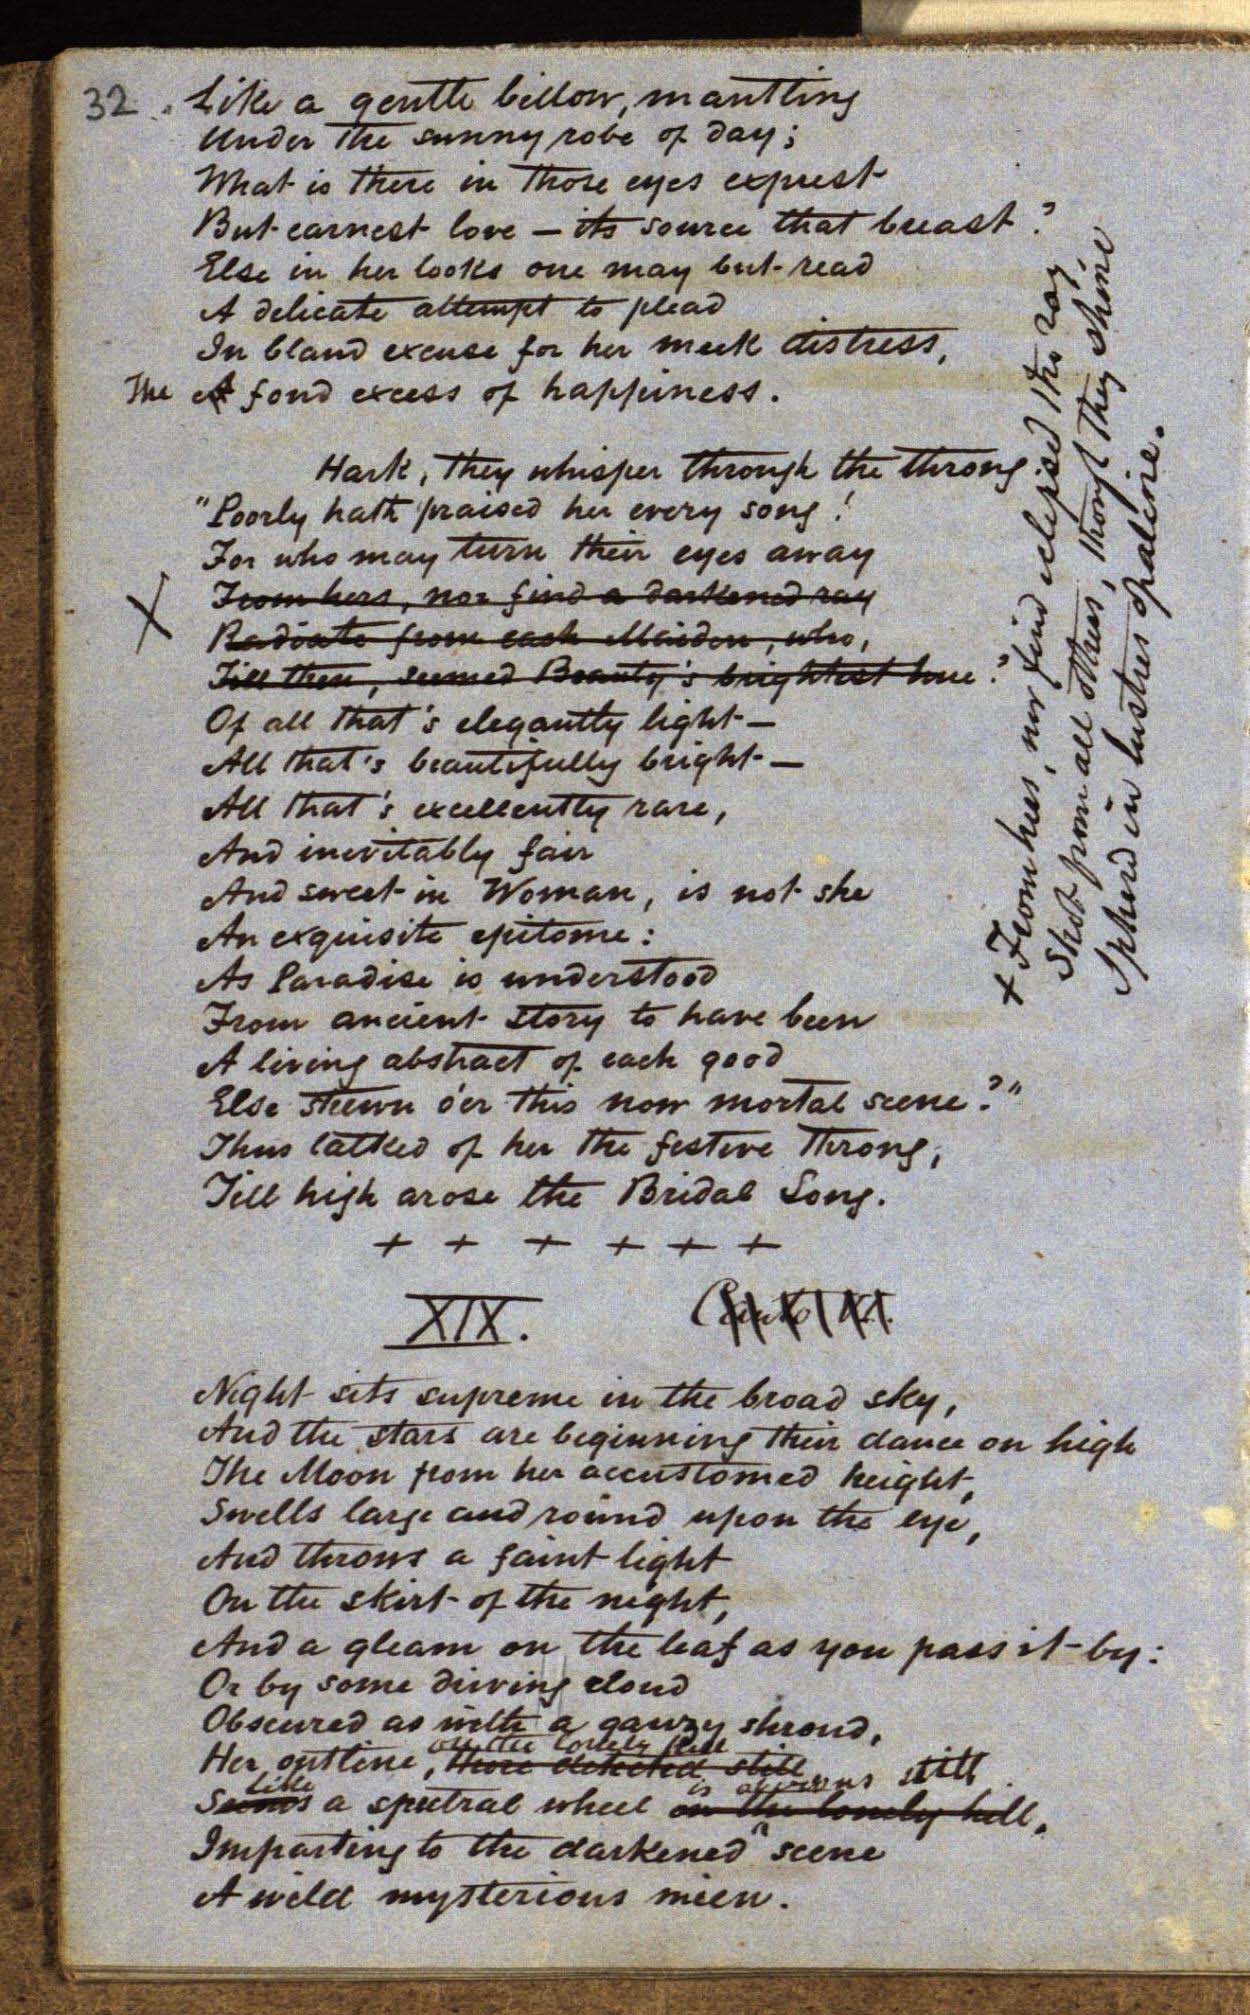 32. Like a gentle billow, mantling
Under the sunny robe of day;
What is there in those eyes exprest
But earnest love — its source that breast?
Else in her looks one may but read
A delicate attempt to plead
In bland excuse for her meek distress,
The A fond excess of happiness.
Hark, they whisper through the throng
"Poorly hath praised her every song!
For who may turn their eyes away
X From hers, nor find a darkened ray
Radiate from each Maiden, who,
Till then, seemed Beauty's brightest hue?
Of all that's elegantly light —
All that's beautifully bright —
All that's excellently rare,
And inevitably fair
And sweet in Woman, is not she
An exquisite epitome:
As Paradise is understood
From ancient story to have been
A living abstract of each good
Else strewn o'er this now mortal scene?"
Thus talked of her the festive throng,
Till high arose the Bridal Song.
+ + + + + +
XIX.
Night sits supreme in the broad sky,
And the stars are beginning their dance on high
The Moon from her accustomed height,
Swells large and round upon the eye,
And throws a faint light
On the skirt of the night,
And a gleam on the leaf as you pass it by:
Or by some driving cloud
Obscured as with a gauzy shroud,
on the lonely hill
Her outline, there detected still
Like is obvious still
Seems a spectral wheel on the lonely hill,
Imparting to the darkened scene
A wild mysterious mien.
+ From hers, nor find eclipsed the ray
Shot from all others, though they shine
Sphered in lustres opaline.